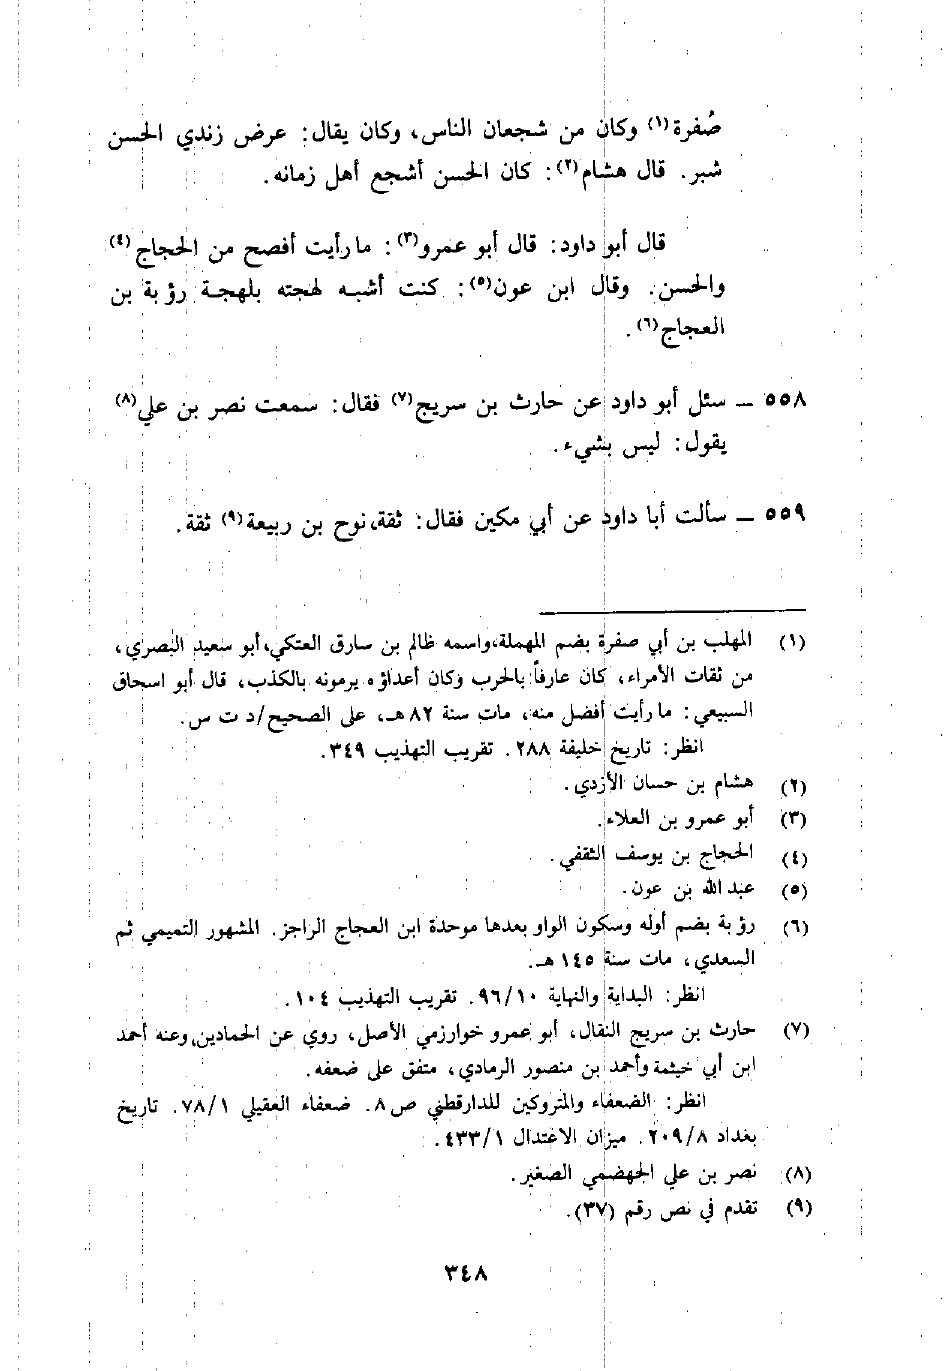 صُفرة(١) وكان من شجعان الناس، وكان يقال: عرض زندي الحسن
شبر. قال هشام(٢): كان الحسن أشجع أهل زمانه.
قال أبو داود: قال أبو عمرو(٣): ما رأيت أفصح من الحجاج(٤)
والحسن. وقال ابن عون(٥): كنت أشبه لهجته بلهجة رؤبة بن
العجاج(٦).
٥٥٨ ـ سئل أبو داود عن حارث بن سريج(٧) فقال: سمعت نصر بن علي(٨)
يقول: ليس بشيء.
٥٥٩ ـ سألت أبا داود عن أبي مكين فقال: ثقة، نوح بن ربيعة(٩) ثقة.
(١) المهلب بن أبي صفرة بضم المهملة، واسمه ظالم بن سارق العتكي، أبو سعيد البصري،
من ثقات الأمراء، كان عارفاً بالحرب وكان أعداؤه يرمونه بالكذب، قال أبو اسحاق
السبيعي: ما رأيت أفضل منه، مات سنة ٨٢ هـ، على الصحيح/د ت س.
انظر: تاريخ خليفة ٢٨٨. تقريب التهذيب ٣٤٩.
(٢) هشام بن حسان الأزدي.
(٣) أبو عمرو بن العلاء.
(٤) الحجاج بن يوسف الثقفي.
(٥) عبد الله بن عون.
(٦) رؤبة بضم أوله وسكون الواو بعدها موحدة ابن العجاج الراجز. المشهور التميمي ثم
السعدي، مات سنة ١٤٥ هـ.
انظر: البداية والنهاية ٩٦/١٠. تقريب التهذيب ١٠٤.
(٧) حارث بن سريج النقال، أبو عمرو خوارزمي الأصل، روي عن الحمادين، وعنه أحمد
ابن أبي خيثمة وأحمد بن منصور الرمادي، متفق على ضعفه.
انظر: الضعفاء والمتروكين للدارقطني ص ٨. ضعفاء العقيلي ٧٨/١. تاريخ
بغداد ٢٠٩/٨. ميزان الاعتدال ٤٣٣/١.
(٨) نصر بن علي الجهضمي الصغير.
(٩) تقدم في نص رقم (٣٧).
٣٤٨